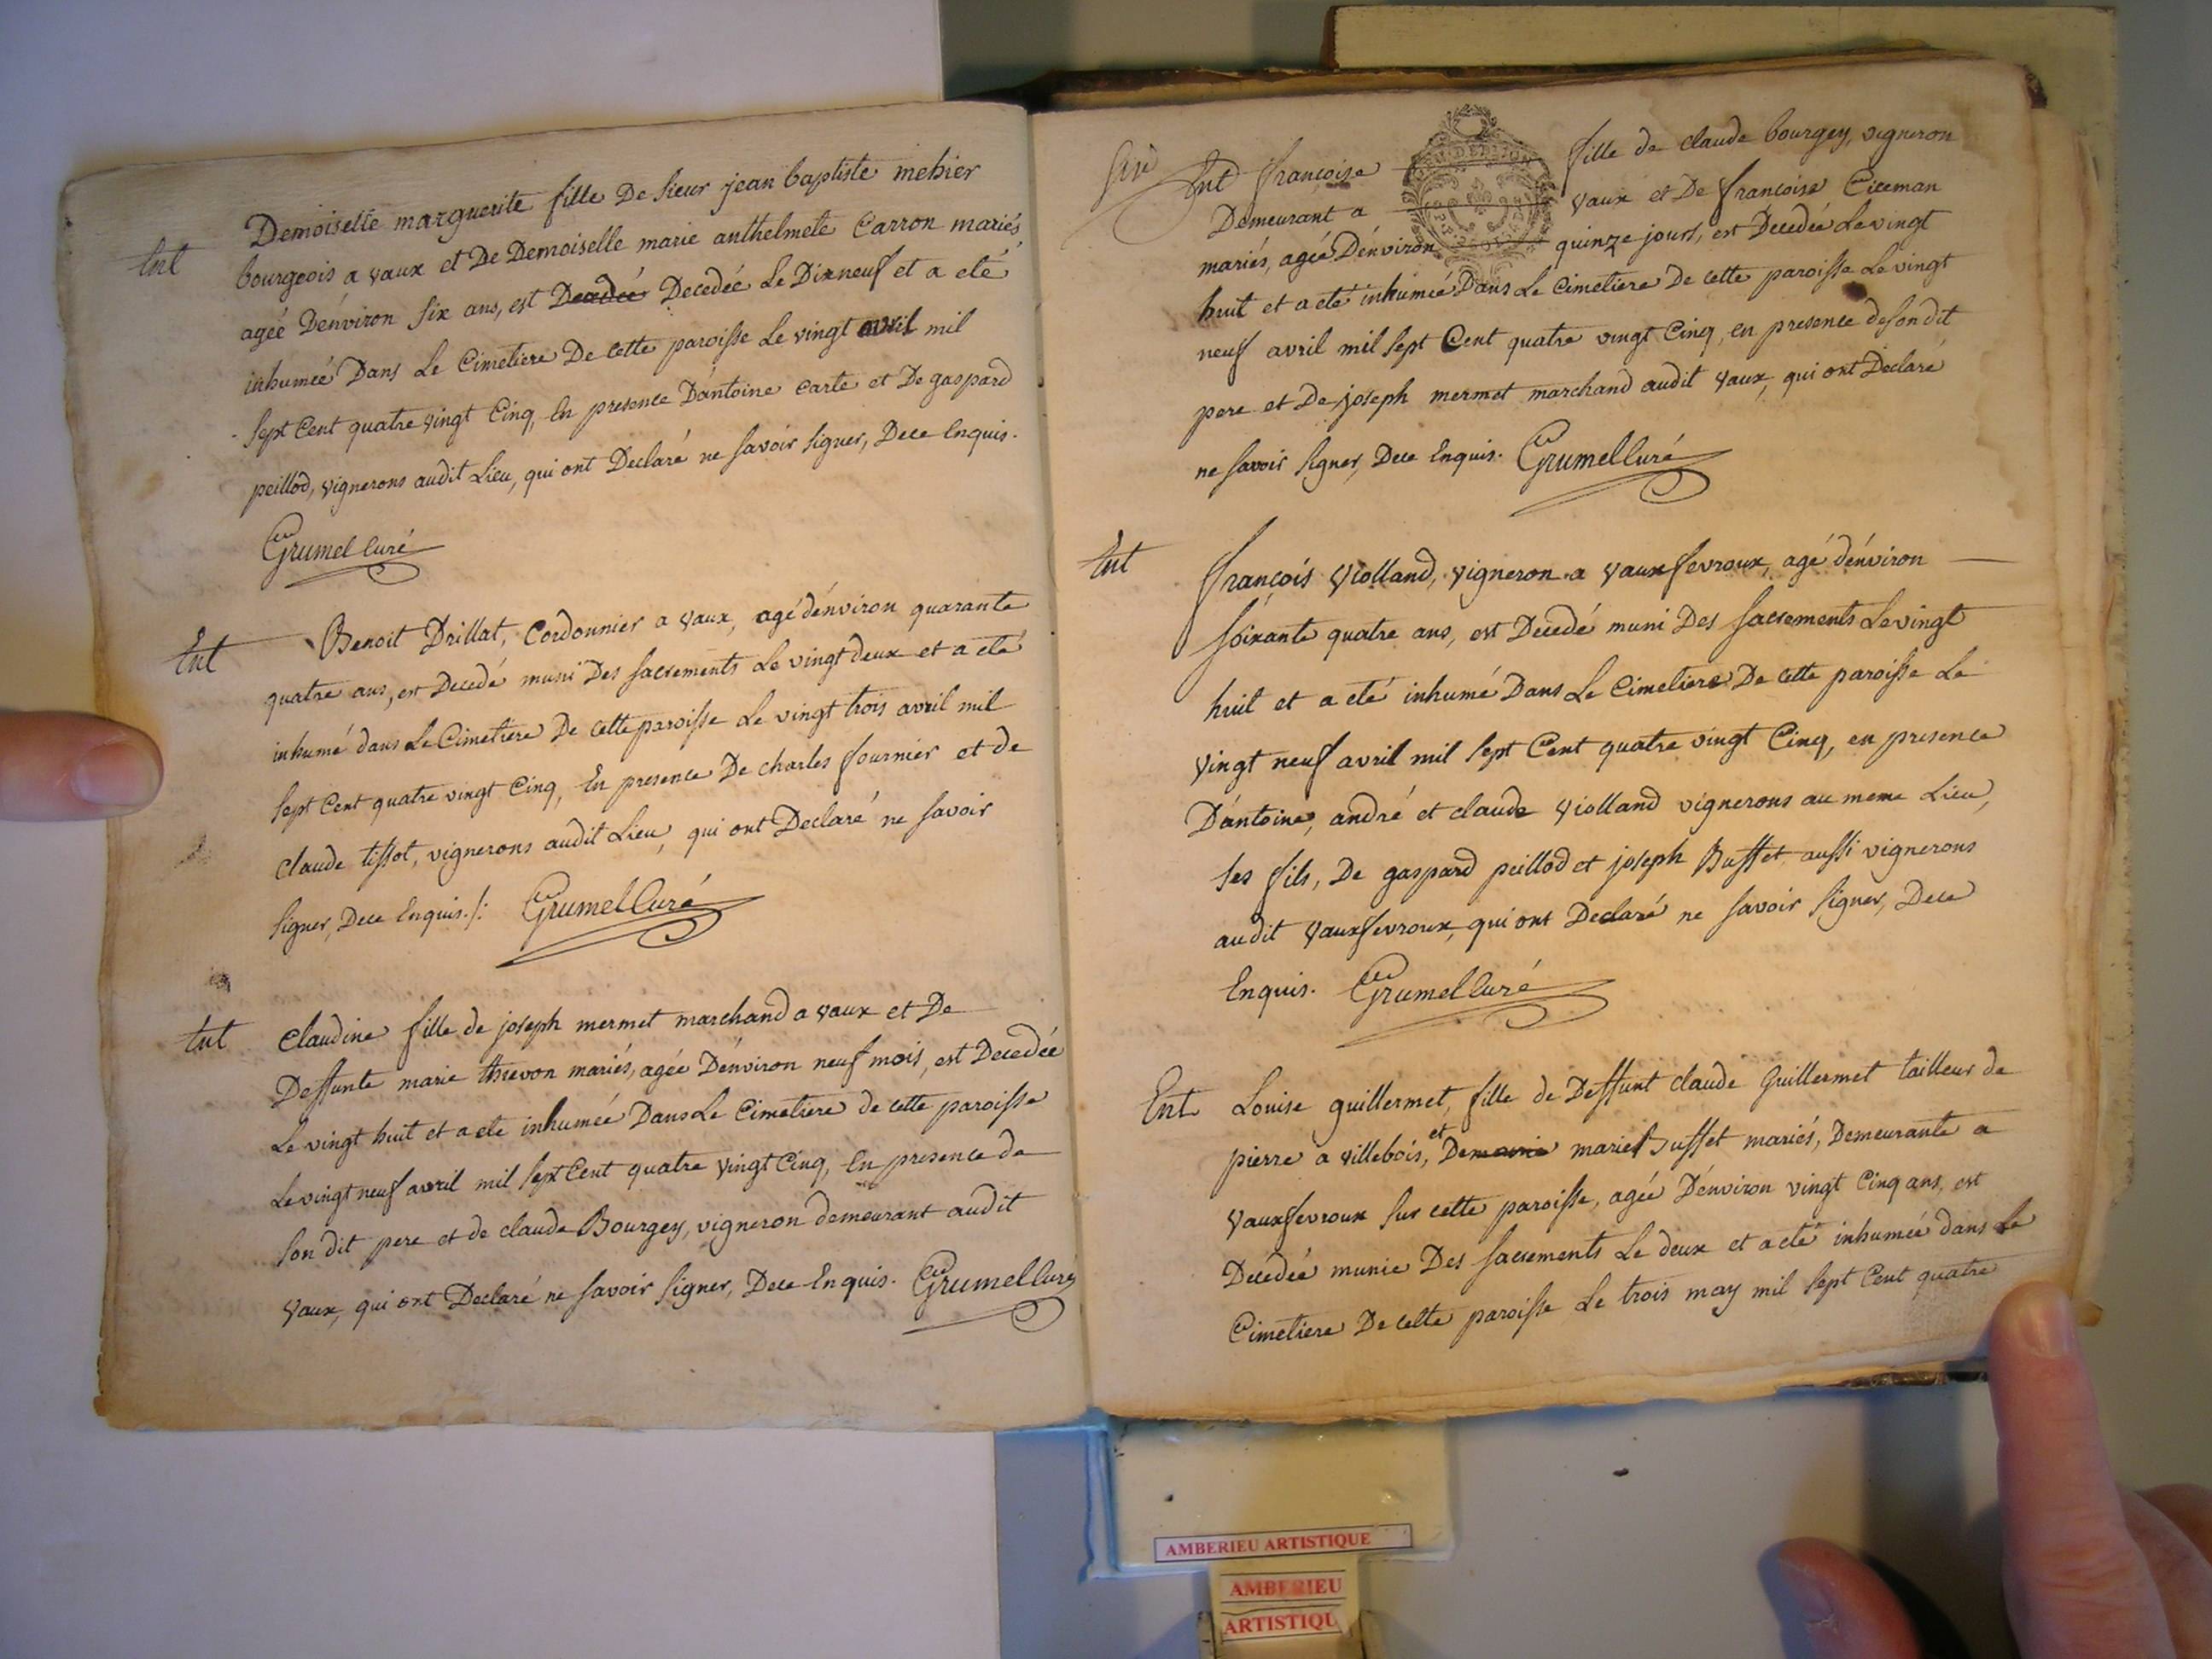 Ent
Demoiselle marguerite fille De sieur jean baptiste mehier
bourgeois a vaux et De Demoiselle marie anthelmete Carron mariés
ageé D'énviron six ans, est Decedeé Le Dixneuf et a eté
inhumeé Dans Le Cimetiere De cette paroisse Le vingt avril mil
sept Cent quatre vingt Cinq, En presence D'antoine carte et De gaspard
peillod, vignerons audit Lieu, qui ont Declaré ne savoir signer, Dece Enquis.
Grumel Curé
Ent
Benoit Drillat, Cordonnier a vaux, agé d'énviron quarante
quatre ans, est Decedé muni Des sacrements Le vingt deux et a eté
inhumé dans Le Cimetiere De cette paroisse Le vingt trois avril mil
sept Cent quatre vingt Cinq, En presence De charles fournier et de
claude tissot, vignerons audit Lieu, qui ont Declaré ne savoir
signer, Dece Enquis./: Grumel Curé
Ent
Claudine fille de joseph mermet marchand a vaux et De
Deffunte marie thievon mariés, agée D'énviron neuf mois, est Decedeé
Le vingt huit et a ete inhumeé Dans Le Cimetiere de cette paroisse
Le vingt neuf avril mil sept Cent quatre vingt Cinq, En presence de
son dit pere et de claude Bourgey, vigneron demeurant audit
vaux, qui ont Declaré ne savoir signer, Dece Enquis. Grumel Curé
Ent françoise fille de claude bourgey, vigneron
Demeurant a vaux et De françoise
mariés, ageé D'énviron quinze jours, est Decedeé Le vingt
huit et a eté inhumeé Dans Le Cimetiere De cette paroisse Le vingt
neuf avril mil sept Cent quatre vingt Cinq, en presence de son dit
pere et De joseph mermet marchand audit vaux, qui ont Declaré
ne savoir signer, Dece Enquis. Grumel Curé
Ent
françois violland, vigneron a vauxfevroux, agé d'énviron
soixante quatre ans, est Decedé muni Des sacrements Le vingt
huit et a eté inhumé Dans Le Cimetiere De cette paroisse Le
vingt neuf avril mil sept Cent quatre vingt Cinq, en presence
D'antoine, andré et claude violland vignerons au meme Lieu,
ses fils, De gaspard peillod et joseph Buffet aussi vignerons
audit vauxfevroux, qui ont Declaré ne savoir signer, Dece
Enquis. Grumel Curé
Ent
Louise guillermet, fille de Deffunt claude guillermet tailleur de
pierre a villebois, et marie Buffet mariés, Demeurante a
vauxfevroux sur cette paroisse, ageé D'énviron vingt Cinq ans, est
Decedeé munie Des sacrements Le deux et a eté inhumeé dans Le
Cimetiere De cette paroisse Le trois may mil sept Cent quatre
AMBERIEU ARTISTIQUE
AMBERIEU
ARTISTIQU